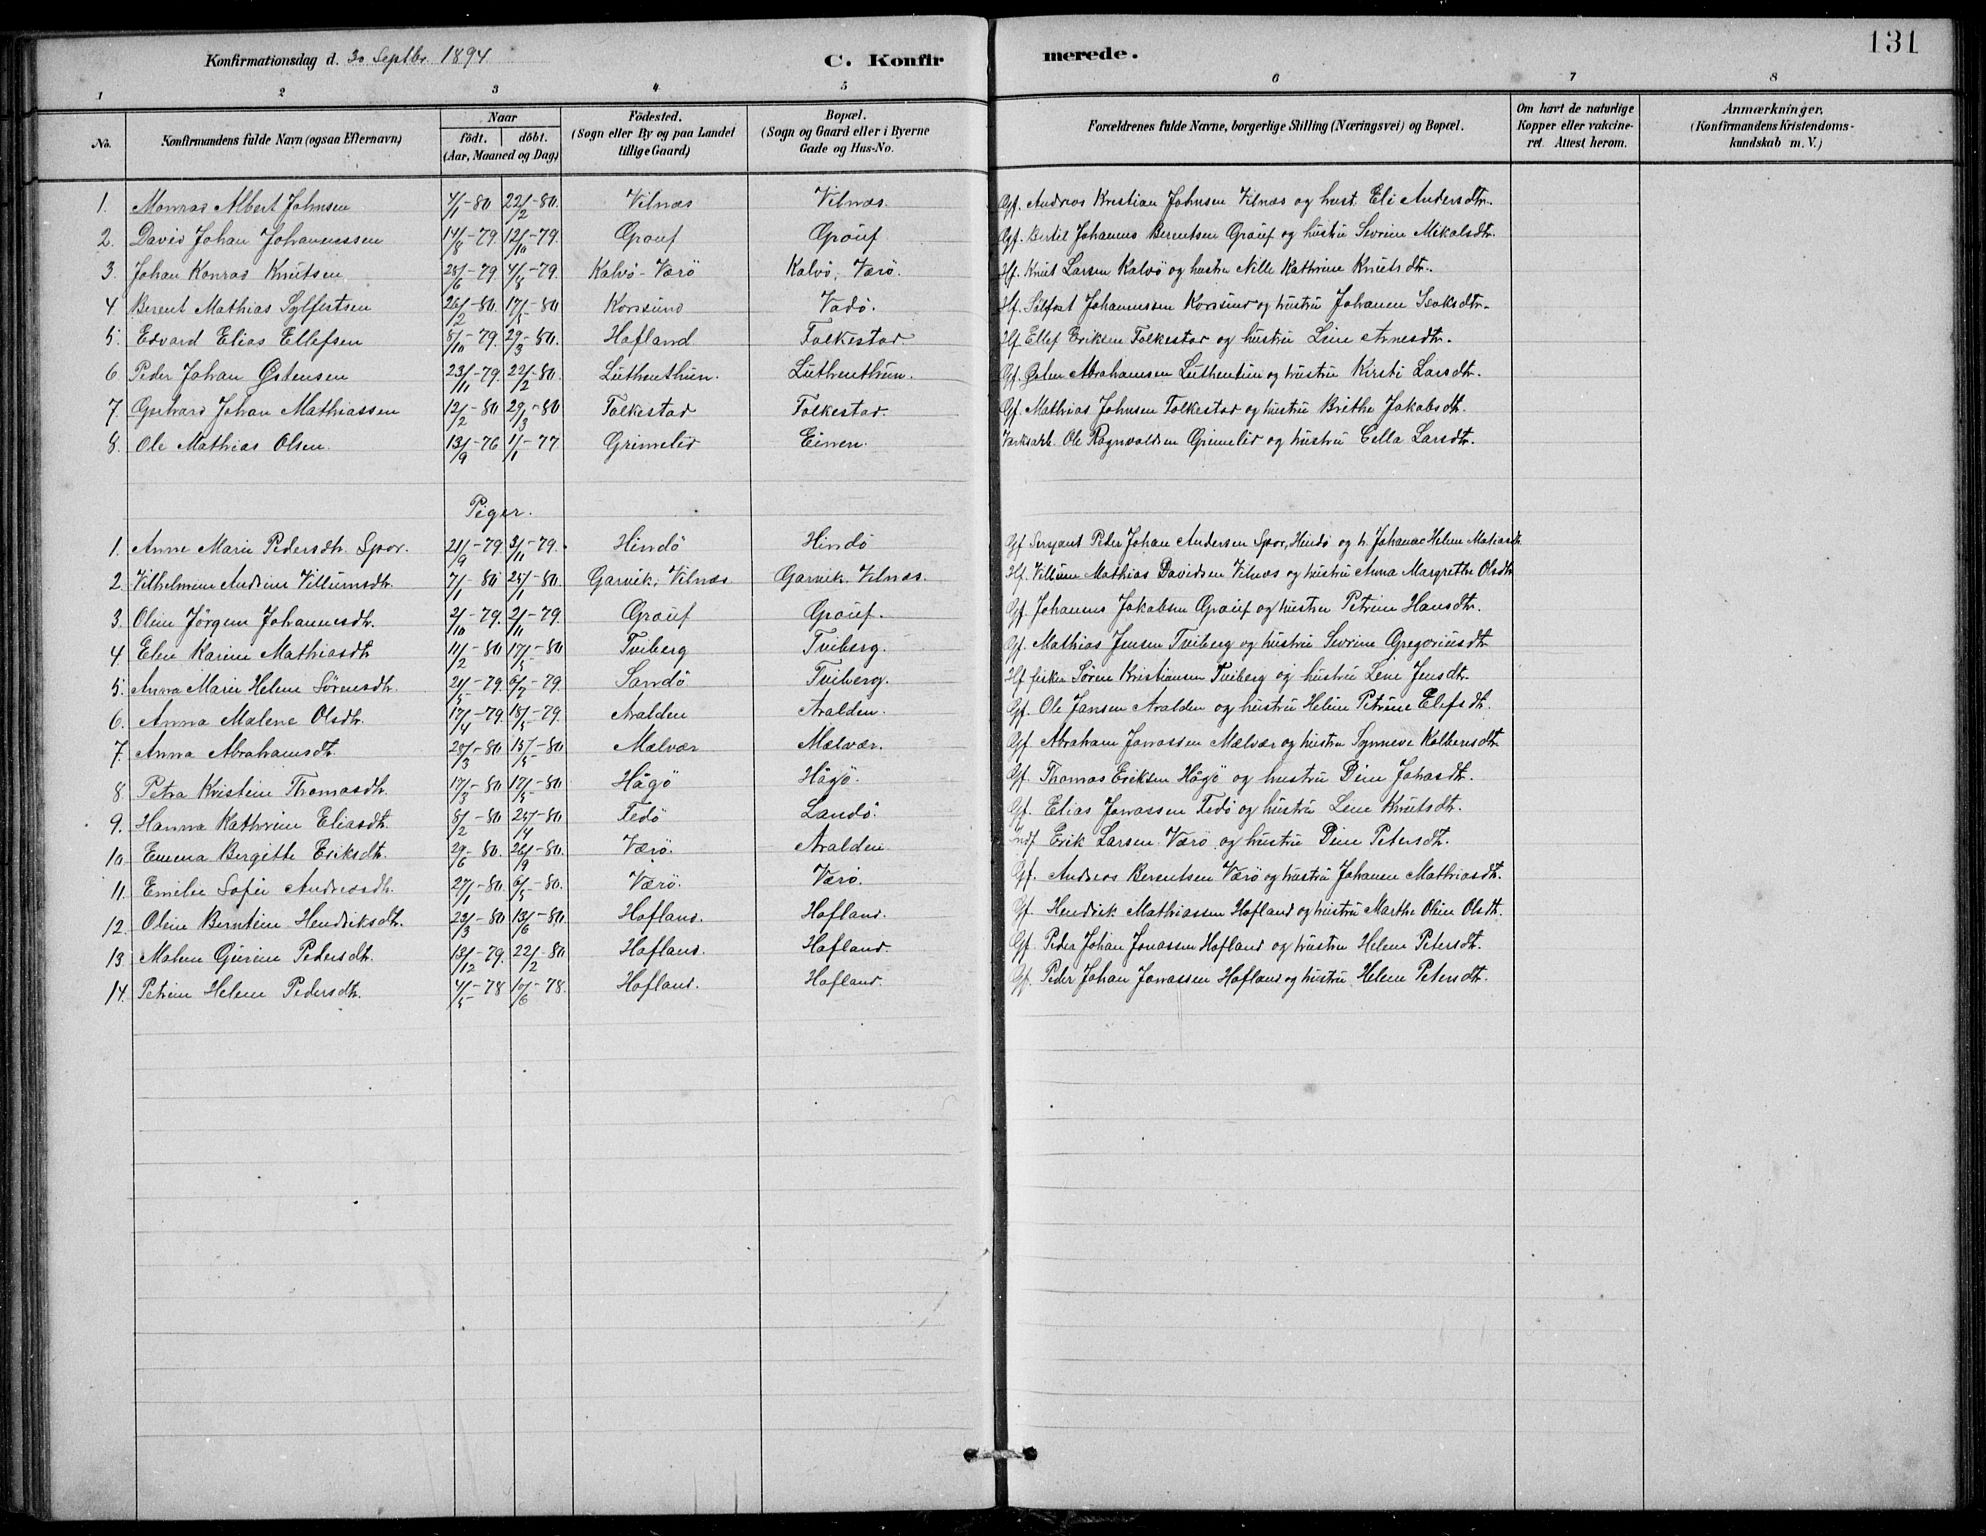 131
Konfirmationsdag d. 30 Septbr 1894 C. Konfirmerede.
1 2 3 4 5 6 7 8
No. Konfirmandens fulde Navn (ogsaa Efternavn) Naar födt. döbt. (Aar, Maaned og Dag) Födested. (Sogn eller By og paa Landet tillige Gaard) Bopæl. (Sogn og Gaard eller i Byerne Gade og Hus-No. Forældrenes fulde Navne, borgerlige Stilling (Næringsvei) og Bopæl. Om havt de naturlige Kopper eller vakcineret. Attest herom. Anmærkninger, (Konfirmandens Kristendomskundskab m. V.)
1. Monrad Albert Johnsen 4/1-80 22/2-80. Vilnæs Vilnæs. Gf. Andreas Kristian Johnsen Vilnæs og hust. Eli Andersdtr.
2. David Johan Johannessen 14/8-79. 12/10-79. Gråuf Gråuf Gf. Bertil Johannes Berentsen Gråuf og hustru Sevrine Mikalsdtr.
3. Johan Konrad Knutsen 25/6-79 4/8-79. Kalvø-Værö Kalvö, Værö. Hf. Knut Larsen Kalvö og hustru Nille Kathrine Knutsdtr.
4 Berent Mathias Sylfestsen 26/2-80. 17/5-80 Korssund Vadö. Hf. Sölfest Johannessen Korssund og hustru Johanne Isaksdtr.
5. Edvard Elias Ellefsen 8/10-79. 29/3-80. Hofland Folkestad Hf Ellef Eriksen Folkestad og hustru Line Arnesdtr.
6 Peder Johan Østensen 23/11-79. 22/2-80. Luthenthun. Luthenthun. Gf. Østen Abrahamsen Luthentun og hustru Kirsti Larsdtr.
7. Gerhard Johan Mathiassen 12/2-80 29/3-80 Folkestad Folkestad. Gf. Mathias Johnsen Folkestad og hustru Brithe Jakobsdtr.
8. Ole Mathias Olsen. 13/9-76 1/1-77 Grimelid Einen. Ole Ragnvaldsen Grimelid og hustru Cella Larsdtr.
Piger.
1. Anne Marie Pedersdtr. Spor. 21/9-79. 3/11-79. Hindö Hindö Gf Sergeant Peder Johan Andersen Spor, Hindö og h. Johanne Helene Matiasdt
2. Vilhelmine Andrine Villumsdtr. 7/1-80 25/1-80. Garvik, Vilnæs Garvik. Vilnæs. Hf. Villum Mathias Davidsen Vilnæs og hustru Anna Margrethe Olsdtr
3. Oline Jörgine Johannesdtr. 2/10-79. 2/11-79 Gråuf Gråuf. Gf. Johannes Jakobsen Gråuf og hustru Petrine Hansdtr.
4 Elen Karine Mathiasdtr 11/2-80 17/5-80 Tviberg Tviberg. Gf. Mathias Jensen Tviberg og hustru Sevrine Gregoriusdtr
5. Anna Marie Helene Sörensdtr. 21/5-79. 6/7-79. Sandö Tviberg. Hf fisker Sören Kristiansen Tviberg og hustru Line Jensdtr.
6. Anna Malene Olsdtr. 17/4-79. 18/5-79. Aralden Aralden. Gf. Ole Jansen Aralden og hustru Helene Petrine Elefsdtr.
7. Anna Abrahamsdtr. 20/3-80 15/5-80 Mælvær Mælvær. Gf. Abraham Jonassen Mælvær og hustru Synneve Kolbensdtr
8. Petra Kristine Thomasdtr. 17/3-80 17/5-80 Hågö Hågö. Gf. Thomas Eriksen Hågö og hustru Dine Johasdtr.
9. Hanna Kathrine Eliasdtr. 8/2-80 25/4-80 Fedö Landö. Gf. Elias Jonassen Fedö og hustru Lene Knutsdtr.
10. Emma Bergitte Eriksdtr. 29/6-80. 26/9-80. Værö. Aralden Indf Erik Larsen Værö og hustru Dine Petersdtr.
11. Emilie Sofie Andreasdtr. 27/1-80. 6/5-80. Værö. Værö. Gf. Andreas Berentsen Værö og hustru Johanne Mathiasdtr.
12. Oline Berntine Hendriksdtr. 23/3-80 13/6-80. Hofland. Hofland. Gf. Hendrik Mathiassen Hofland og hustru Marthe Oline Olsdtr.
13. Malene Gurine Pedersdtr. 13/12-79. 22/2-80 Hofland. Hofland. Gf. Peder Johan Jonassen Hofland og hustru Helene Petersdtr.
14. Petrine Helene Pedersdtr. 4/5-78 10/6-78. Hofland. Hofland. Gf. Peder Johan Jonassen Hofland og hustru Helene Petersdtr.